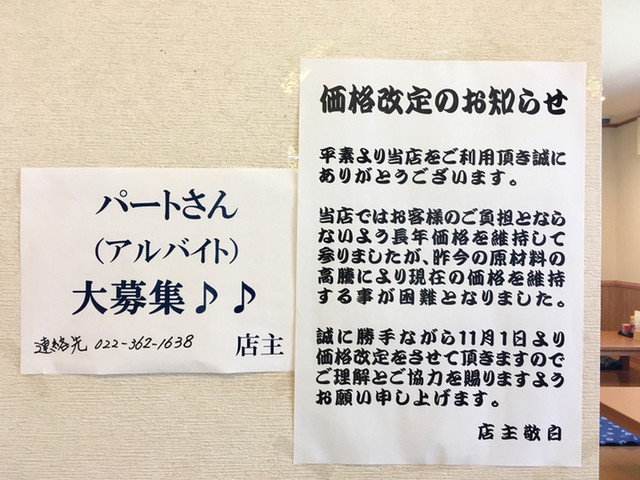 パートさん
（アルバイト）
大募集♪♪
連絡先 022-362-1638 店主
価格改定のお知らせ
平素より当店をご利用頂き誠に
ありがとうございます。
当店ではお客様のご負担となら
ないよう長年価格を維持して
参りましたが、昨今の原材料の
高騰により現在の価格を維持
する事が困難となりました。
誠に勝手ながら11月1日より
価格改定をさせて頂きますので
ご理解とご協力を賜りますよう
お願い申し上げます。
店主敬白